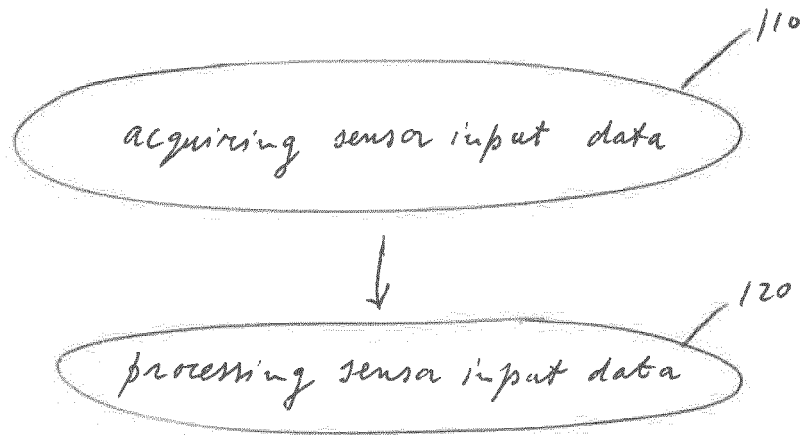 110
acquiring sensor input data
120
processing sensor input data